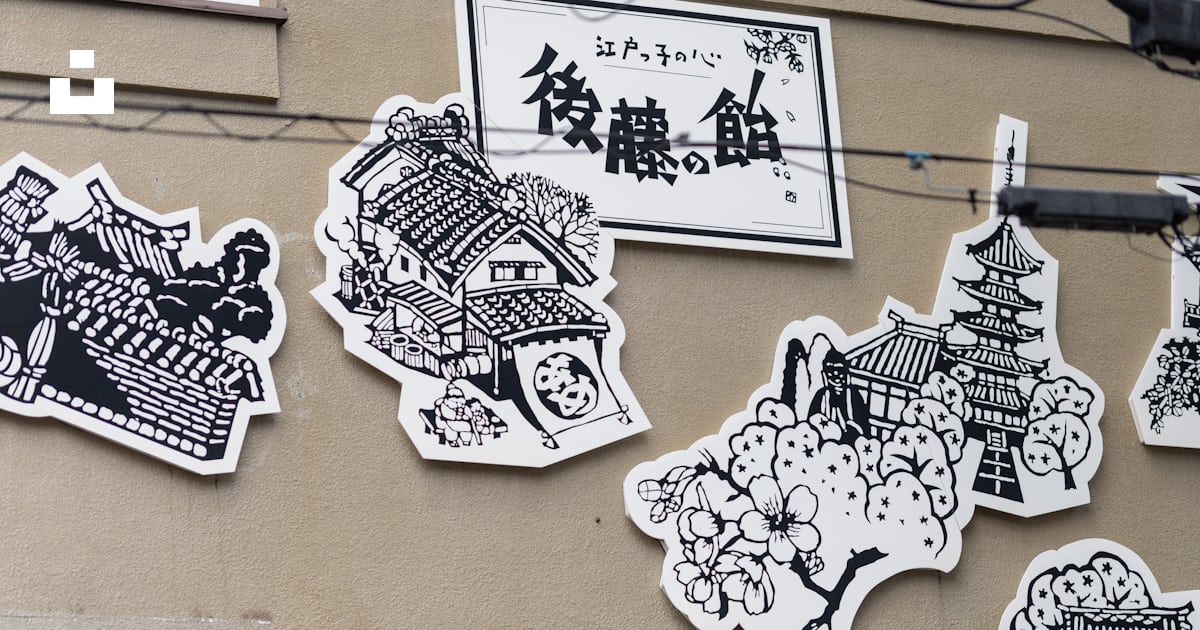 江戸っ子の心
後藤の飴
あめ